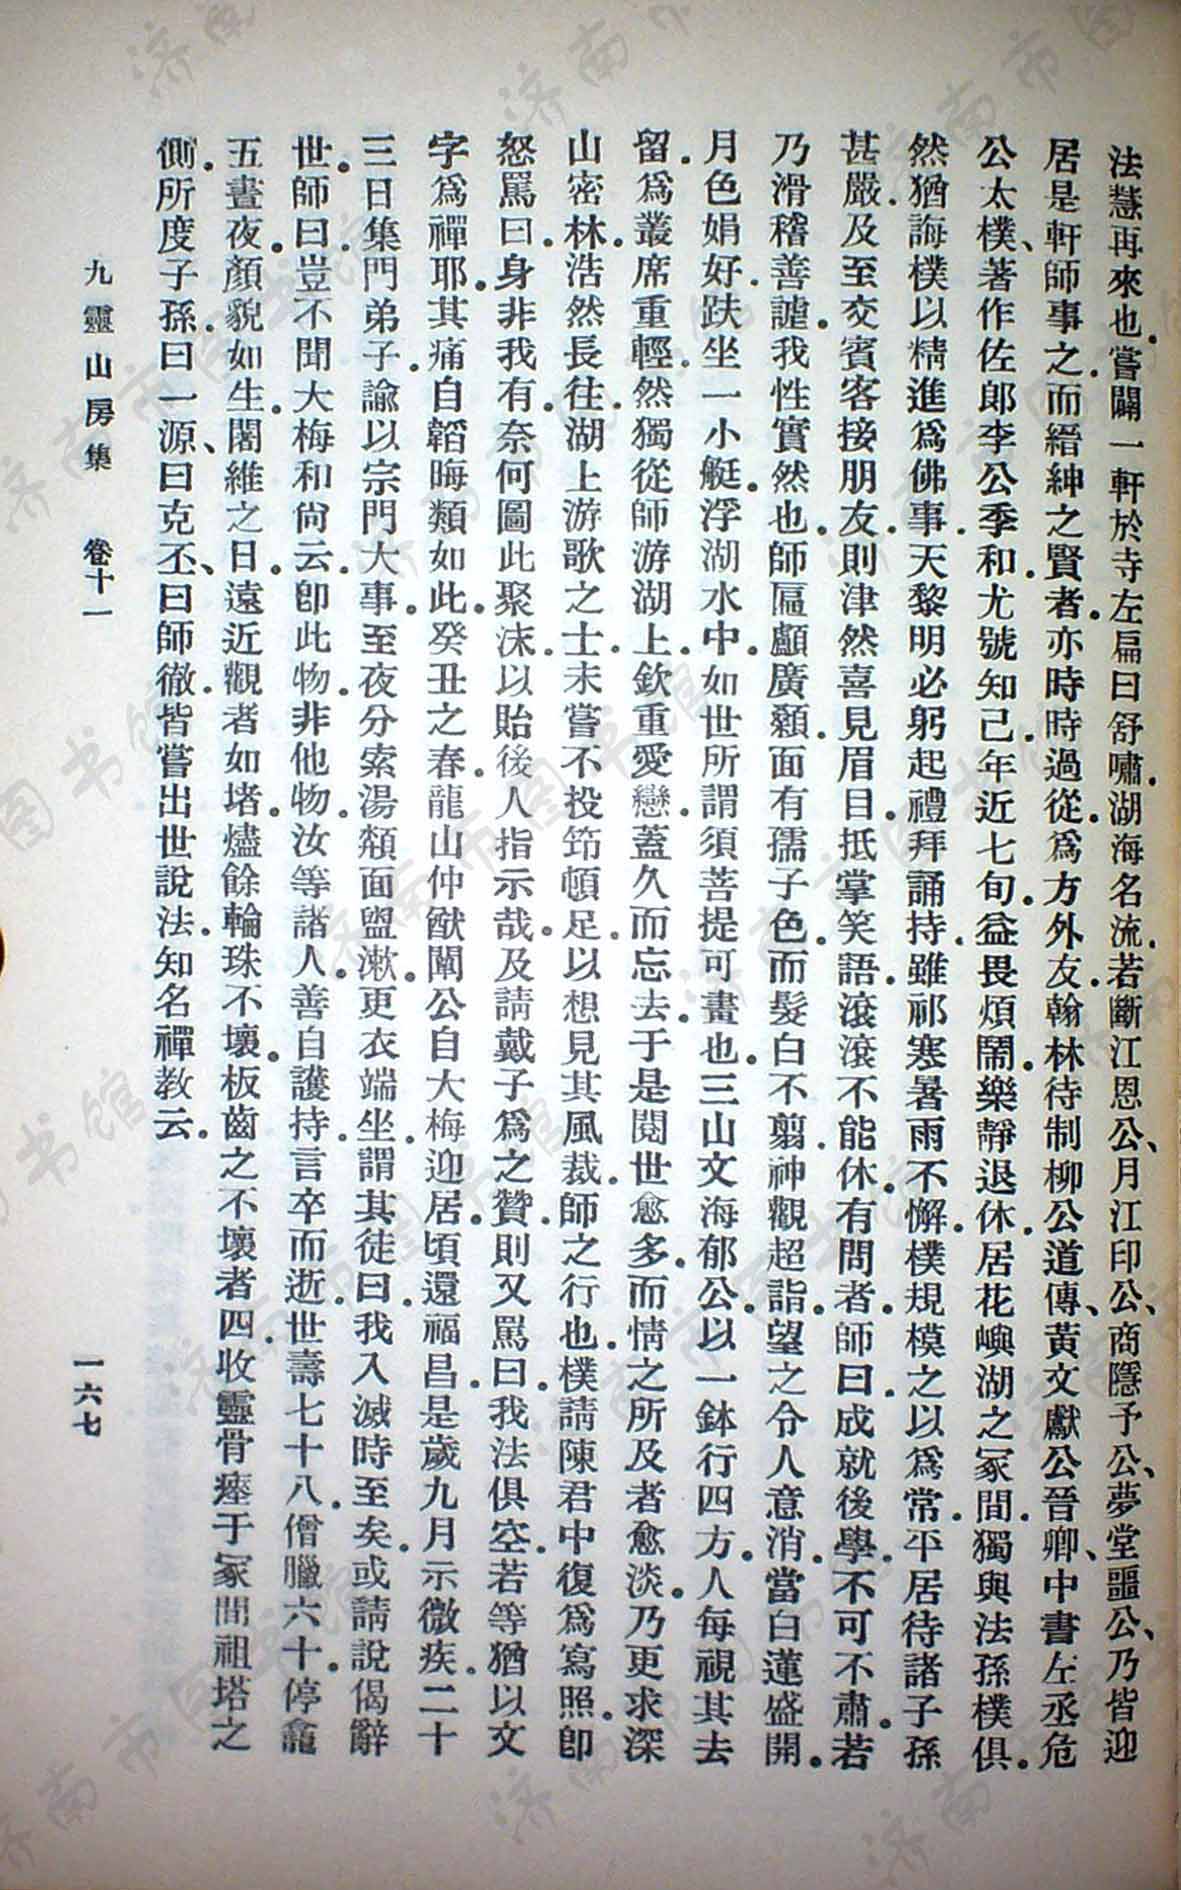 法慧再來也。嘗闢一軒於寺左扁曰舒嘯。湖海名流。若斷江恩公、月江印公、商隱予公、夢堂噩公、乃皆迎
居是軒師事之。而縉紳之賢者。亦時時過從。爲方外友。翰林待制柳公道傳、黃文獻公晉卿、中書左丞危
公太樸、著作佐郎李公季和。尤號知己。年近七旬。益畏煩鬧。樂靜退休。居花嶼湖之冢間。獨與法孫樸俱。
然猶誨樸以精進爲佛事。天黎明必躬起禮拜誦持。雖祁寒暑雨不懈。樸規模之以爲常。平居待諸子孫
甚嚴。及至交賓客接朋友。則津然喜見眉目。抵掌笑語。滾滾不能休。有問者。師曰。成就後學。不可不肅。若
乃滑稽善謔。我性實然也。師匾顱廣顙。面有孺子色。而髮白不翦。神觀超詣。望之令人意消。當白蓮盛開。
月色娟好。趺坐一小艇。浮湖水中。如世所謂須菩提可畫也。三山文海郁公。以一鉢行四方。人每視其去
留。爲叢席重輕。然獨從師游湖上。欽重愛戀。蓋久而忘去。于是閱世愈多。而情之所及者愈淡。乃更求深
山密林。浩然長往。湖上游歌之士。未嘗不投笻頓足。以想見其風裁。師之行也。樸請陳君中復爲寫照。卽
怒罵曰。身非我有。奈何圖此聚沫。以貽後人指示哉。及請戴子爲之贊。則又罵曰。我法俱空。若等猶以文
字爲禪耶。其痛自韜晦類如此。癸丑之春。龍山仲猷闡公自大梅迎居。頃還福昌。是歲九月示微疾。二十
三日集門弟子。諭以宗門大事。至夜分索湯頮面盥漱。更衣端坐。謂其徒曰。我入滅時至矣。或請說偈辭
世。師曰。豈不聞大梅和尙云。卽此物。非他物。汝等諸人。善自護持。言卒而逝。世壽七十八。僧臘六十。停龕
五晝夜。顏貌如生。闍維之日。遠近觀者如堵。燼餘輪珠不壞。板齒之不壞者四。收靈骨瘞于冢間祖塔之
側。所度子孫。曰一源、曰克丕、曰師徹。皆嘗出世說法。知名禪教云。
九靈山房集　卷十一　一六七
济南市图书馆